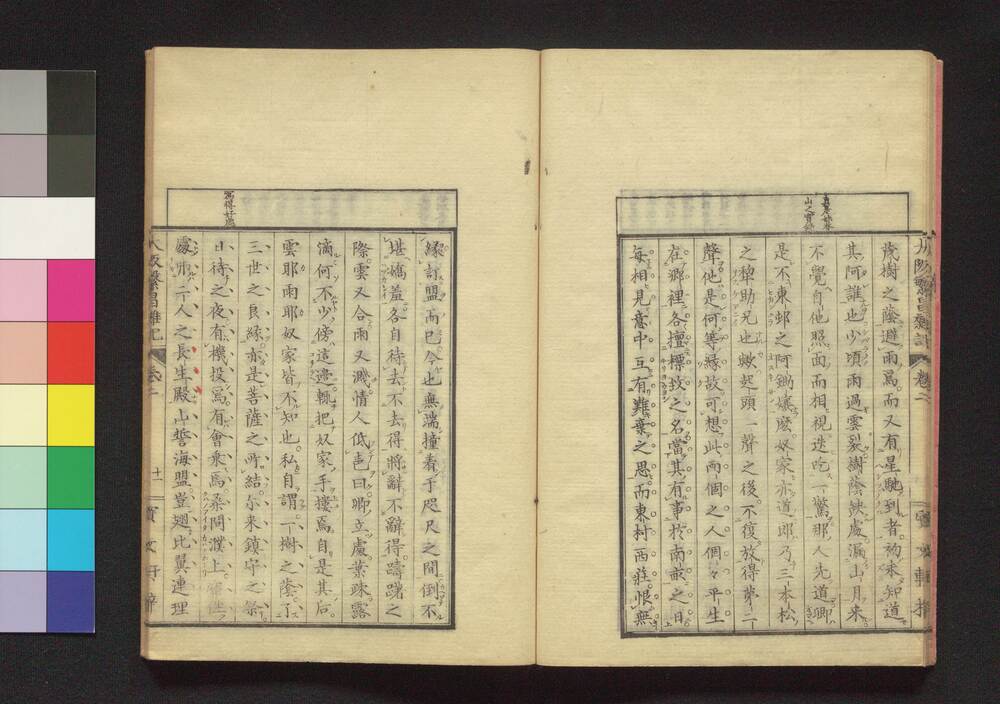 茂樹之蔭避雨焉而又有星馳到者初未知道
其阿誰也少頃雨過雲裂樹蔭缺處漏山月来
不覺自他照面而相視迭吃一驚那人先道卿
是不東邨之阿鋤孃麽奴家亦道郎乃三本松
之犂助兄也歟起頭一聲之後不復放得第二
聲他是何等縁故可想此兩個之人個々平生
在郷裡各擅標致之名當其有事於南畝之日
毎相見意中互有難葉之思而東村西莊恨無
大阪繁昌雜記
卷二
寫得好處
縁訂盟而已今也無端撞着于咫尺之間倒不
堪嬌羞各自待去不去得將辭不辭得躊躇之
際雲又合雨又濺情人低声曰卿立處葉疎露
滴何不少傍這邉輒把奴家手摟焉自是其后
雲耶雨耶奴家皆不知也私自謂一樹之蔭了
三世之良縁亦是菩薩之所結尓来鎮守之祭
日待之夜有機投焉有會乘焉桑間濮上
處所二人之長生殿山誓海盟豈翅比翼連理
大阪繁昌雜記
卷二
十一
寳文軒梓